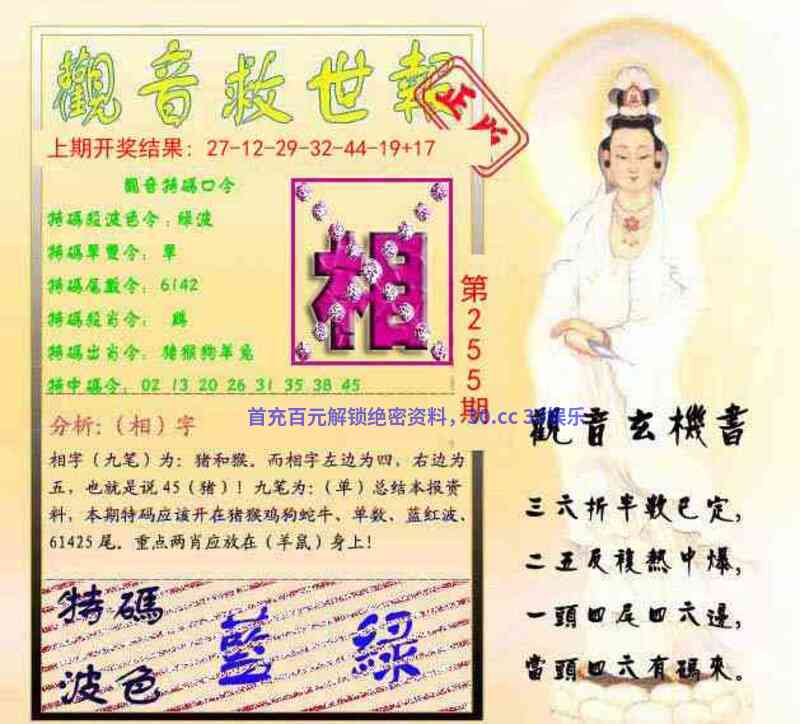 觀音救世報
正
上期开奖结果：27-12-29-32-44-19+17
觀音特碼口令
特碼殺波色令：綠波
特碼單雙令：單
特碼尾數令：6142
特碼殺肖令：
特碼出肖令：豬猴狗羊兔
特中碼令：02 13 20 26 31 35 38 45
相
第255期
首充百元解锁绝密资料，30.cc 3 娱乐
分析:（相）字
相字（九笔）为：猪和猴。而相字左边为四，右边为
五，也就是说45（猪）！九笔为：（单）总结本报资
料，本期特码应该开在猪猴鸡狗蛇牛、单数、蓝红波、
61425尾。重点两肖应放在（羊鼠）身上！
特碼
波色
藍 綠
觀音玄機書
三六折半數已定，
二五反複熱中爆，
一頭四尾四六邊，
當頭四六有碼來。